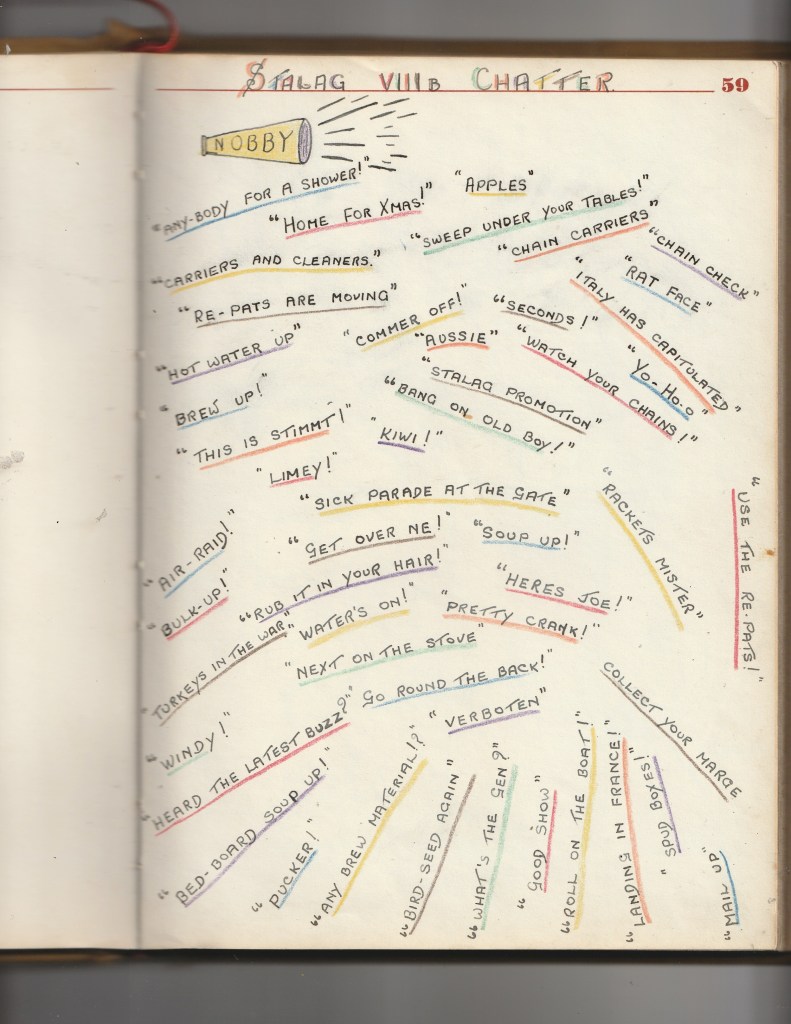 STALAG VIIIB CHATTER.
59
NOBBY
"ANY-BODY FOR A SHOWER!"
"HOME FOR XMAS!"
"APPLES"
"SWEEP UNDER YOUR TABLES!"
"CHAIN CARRIERS"
"CHAIN CHECK"
"CARRIERS AND CLEANERS."
"RAT FACE"
"ITALY HAS CAPITULATED"
"RE-PATS ARE MOVING"
"COMMER OFF!"
"SECONDS!"
"HOT WATER UP"
"AUSSIE"
"WATCH YOUR CHAINS!"
"YO-HO-O"
"STALAG PROMOTION"
"BREW UP!"
"BANG ON OLD BOY!"
"THIS IS STIMMT!"
"KIWI!"
"LIMEY!"
"SICK PARADE AT THE GATE"
"RACKETS MISTER"
"USE THE RE-PATS!"
"AIR-RAID!"
"GET OVER NE!"
"SOUP UP!"
"BULK-UP!"
"RUB IT IN YOUR HAIR!"
"HERES JOE!"
"WATER'S ON!"
"PRETTY CRANK!"
"TURKEYS IN THE WAR"
"NEXT ON THE STOVE"
GO ROUND THE BACK!"
COLLECT YOUR MARGE
"WINDY!"
"HEARD THE LATEST BUZZ?"
"VERBOTEN"
"BED-BOARD SOUP UP!"
"PUCKER!"
"ANY BREW MATERIAL!?"
"BIRD-SEED AGAIN"
"WHAT'S THE GEN?"
"GOOD SHOW"
"ROLL ON THE BOAT!"
"LANDING IN FRANCE!"
"SPUD BOXES!"
"MAIL UP"